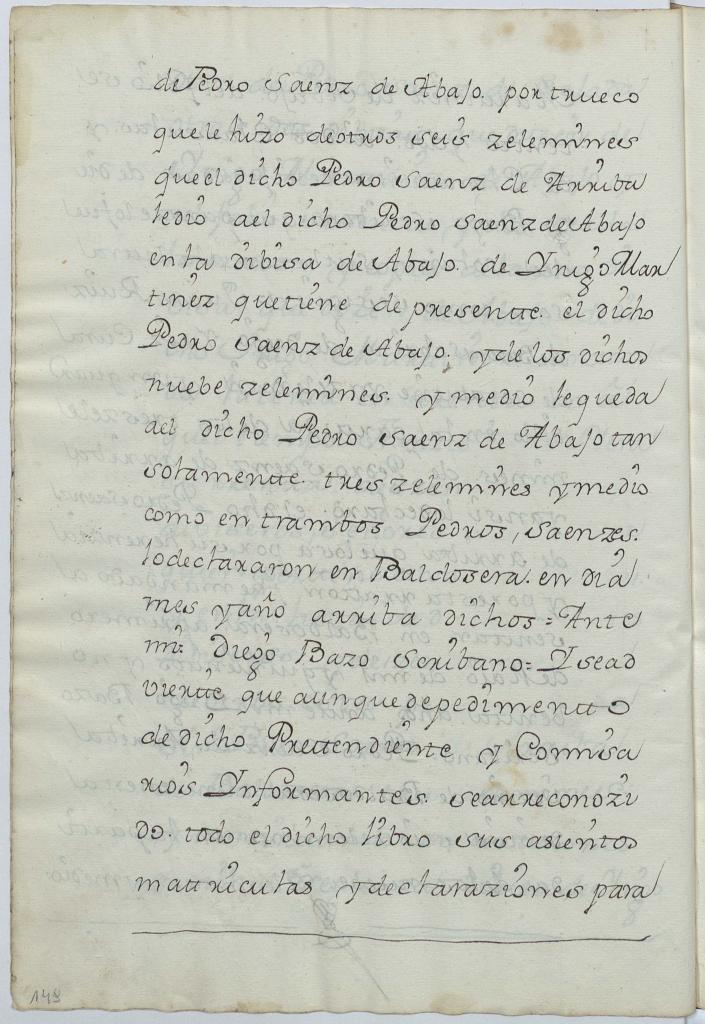 de Pedro Saenz de Abajo. por trueco
que le hizo de otros seis zelemines
que el dicho Pedro Saenz de Arriba
ledio ael dicho Pedro Saenz de Abajo
en la dibisa de Abajo. de Ynigo Mar
tinez que tiene de presentte. el dicho
Pedro Saenz de Abajo. y de los dichos
nuebe zelemines. y medio le queda
ael dicho Pedro Saenz de Abajo tan
solamentte. tres zelemines y medio
como entrambos Pedros, Saenzes.
lo declararon en Baldosera. en dia
mes y año arriba dichos = Ante
mi: Diego Bazo Scribano = Y se ad
viertte que aunque de pedimentto
de dicho Prettendiente y Comisa
rios Ynformantes. se a rreconozi
do. todo el dicho libro sus asientos
mattriculas y declaraziones para
149